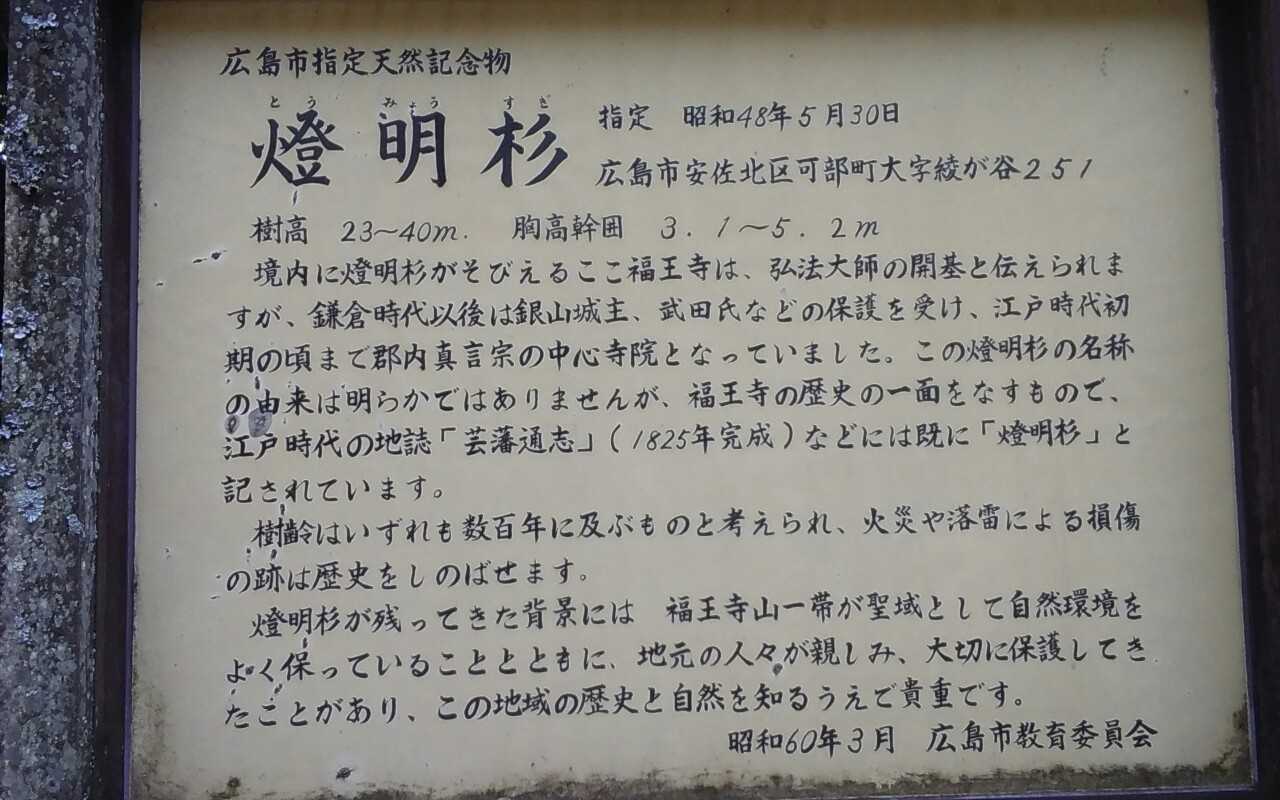 広島市指定天然記念物
とう みょう すぎ
燈明杉 指定 昭和48年5月30日
広島市安佐北区可部町大字綾が谷251
樹高 23~40m. 胸高幹囲 3.1~5.2m
境内に燈明杉がそびえるここ福王寺は、弘法大師の開基と伝えられま
すが、鎌倉時代以後は銀山城主、武田氏などの保護を受け、江戸時代初
期の頃まで郡内真言宗の中心寺院となっていました。この燈明杉の名称
の由来は明らかではありませんが、福王寺の歴史の一面をなすもので、
江戸時代の地誌「芸藩通志」(1825年完成)などには既に「燈明杉」と
記されています。
樹齢はいずれも数百年に及ぶものと考えられ、火災や落雷による損傷
の跡は歴史をしのばせます。
燈明杉が残ってきた背景には 福王寺山一帯が聖域として自然環境を
よく保っていることとともに、地元の人々が親しみ、大切に保護してき
たことがあり、この地域の歴史と自然を知るうえで貴重です。
昭和60年3月 広島市教育委員会